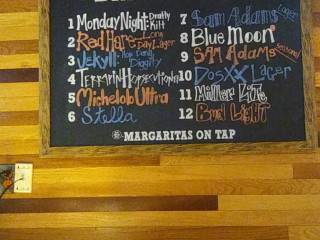 1 Monday Night-Death Kilt
2 Red Hare-Long Day Lager
3 Jekyll-Hop Dang Diggity
4 Terrapin Hopsecutioner
5 Michelob Ultra
6 Stella
7 Sam Adams Lager
8 Blue Moon
9 Sam Adams Seasonal
10 Dos XX Lager
11 Miller Lite
12 Bud Light
MARGARITAS ON TAP